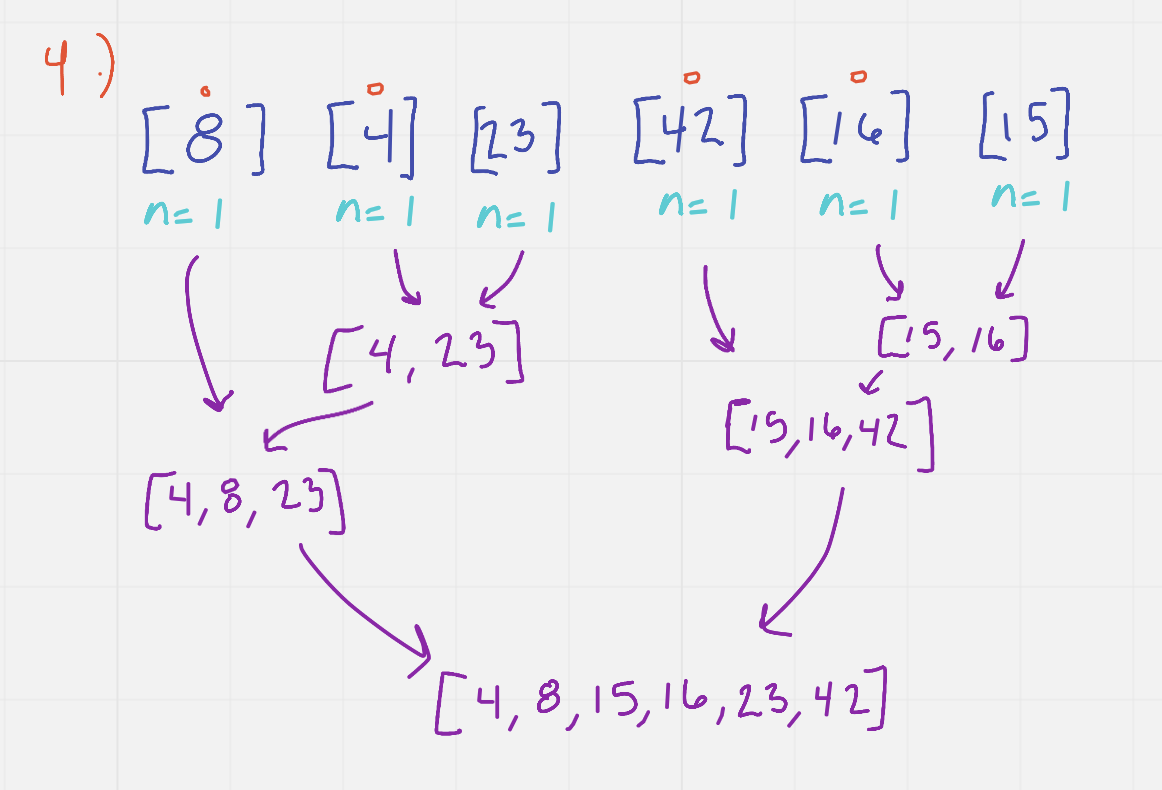 4.)
[8] [4] [23] [42] [16] [15]
n=1 n=1 n=1 n=1 n=1 n=1
[4, 23] [15, 16]
[15, 16, 42]
[4, 8, 23]
[4, 8, 15, 16, 23, 42]